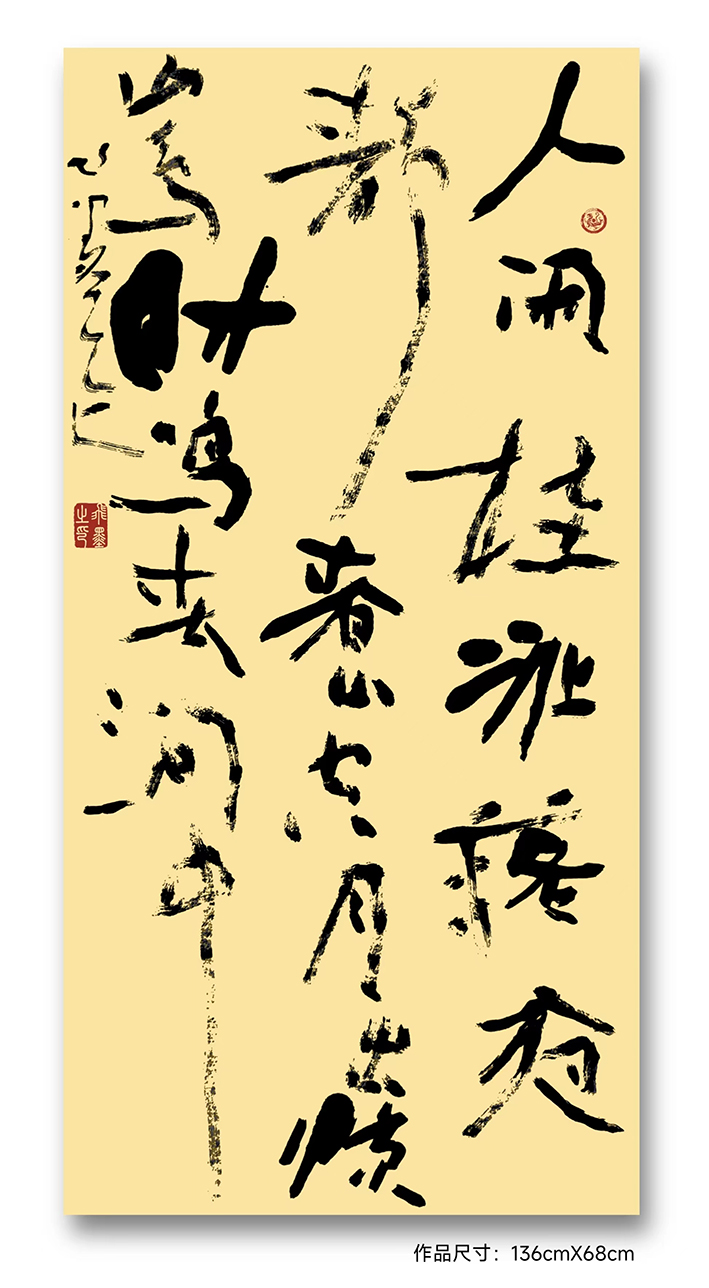 人闲桂花落夜
静春山空月出惊
山鸟时鸣春涧中
飛墨之印
作品尺寸：136cmX68cm